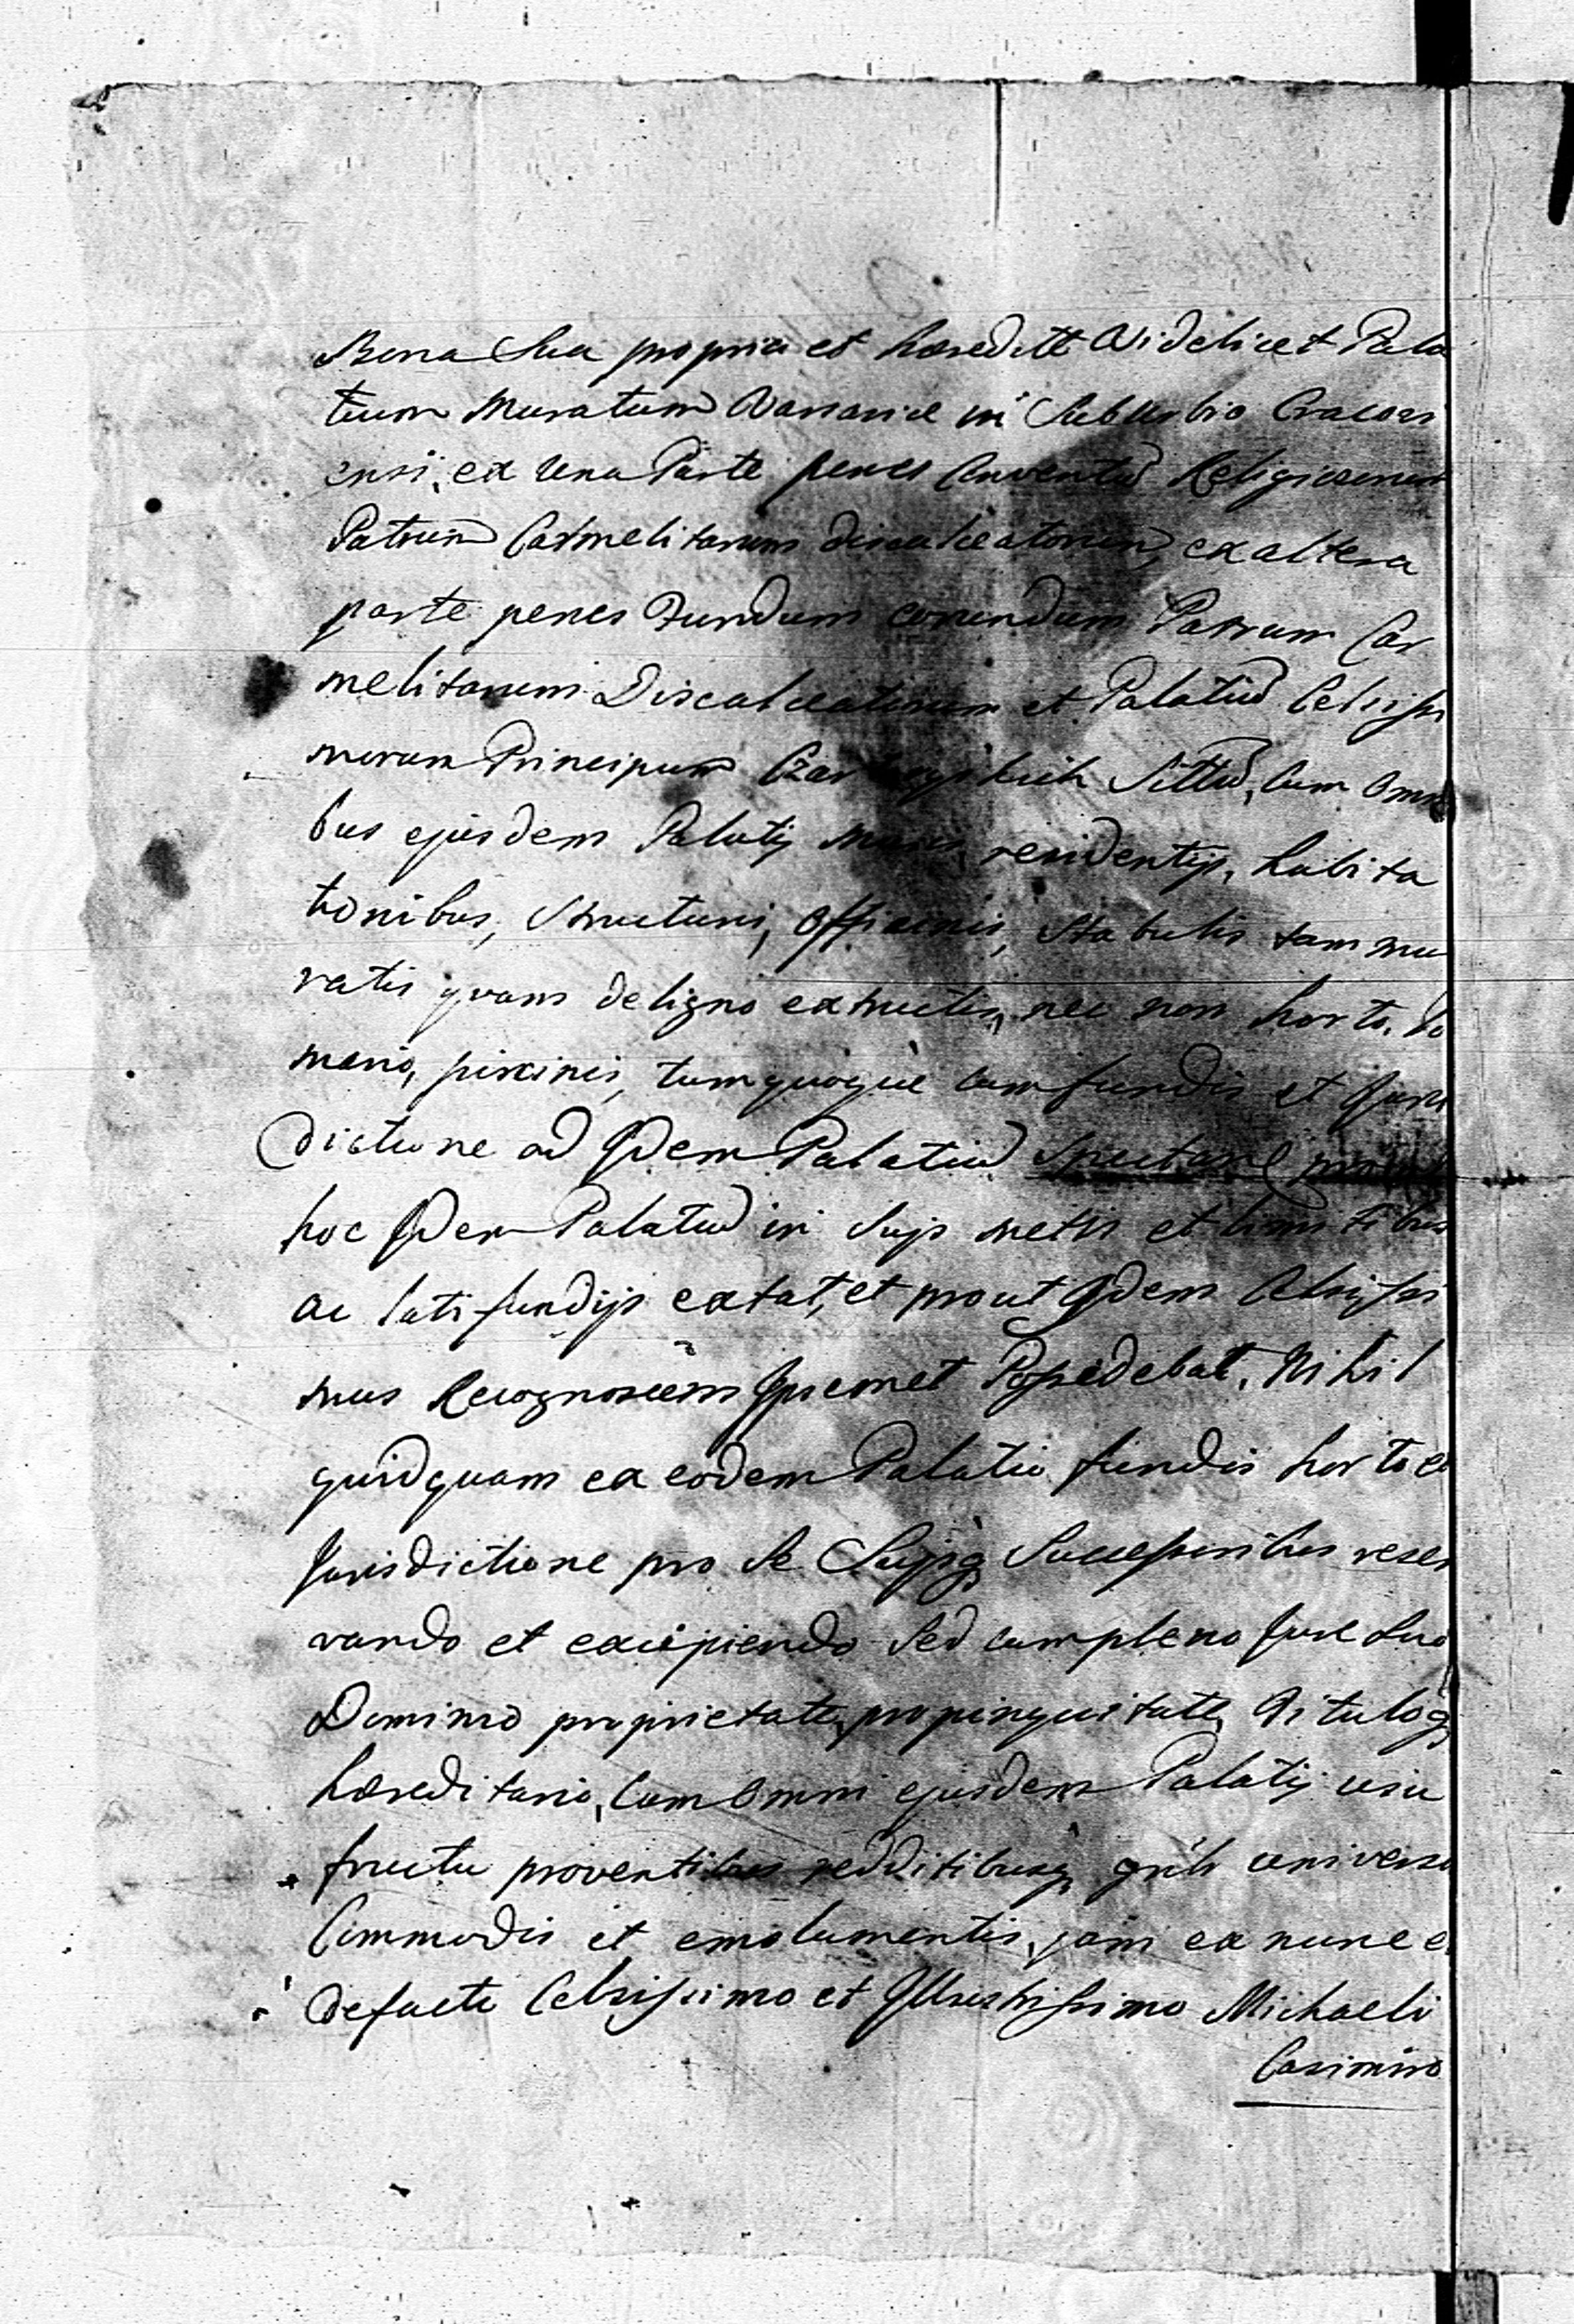 Bona Sua propria et hæreditt Videlicet Pala
tium Muratum Varsaviæ in Suburbio Cracovi
ensi, ex una Parte penes Conventũ Religiosorum
Patrum Carmelitarum discalceatorum, ex altera
parte penes Fundum eorundum Patrum Car
melitarum Discalceatorum et Palatiũ Celsissi
morum Principum Sittũ, cum Omni
bus ejusdem Palatij residentijs, habita
tionibus, Structuris, Officinis, Stabulis tam mu
ratis quam de ligno extructis, nec non horto,
mario, piscinis, tumquoque cum fundis et Juris
dictione ad Idem Palatiũ Spectante
hoc Idem Palatiũ in Suis metis et limitibus
ac latifundijs extat, et prout Idem Celsissi
mus Recognoscens Ipsemet Possidebat, Nihil
quidquam ex eodem Palatio fundis horto et
Jurisdictione pro Se Suisq Successoribus reser
vando et excipiendo Sed cum pleno Jure Suo
Dominio proprietate, propinquitate, Tituloq
hæreditario, Cum Omni ejusdem Palatij usu
fructu proventibus redditibusq gnlr universis
Commodis et emolumentis, jam ex nunc et
defacto Celsissimo et Illustrissimo Michaeli
Casimiro